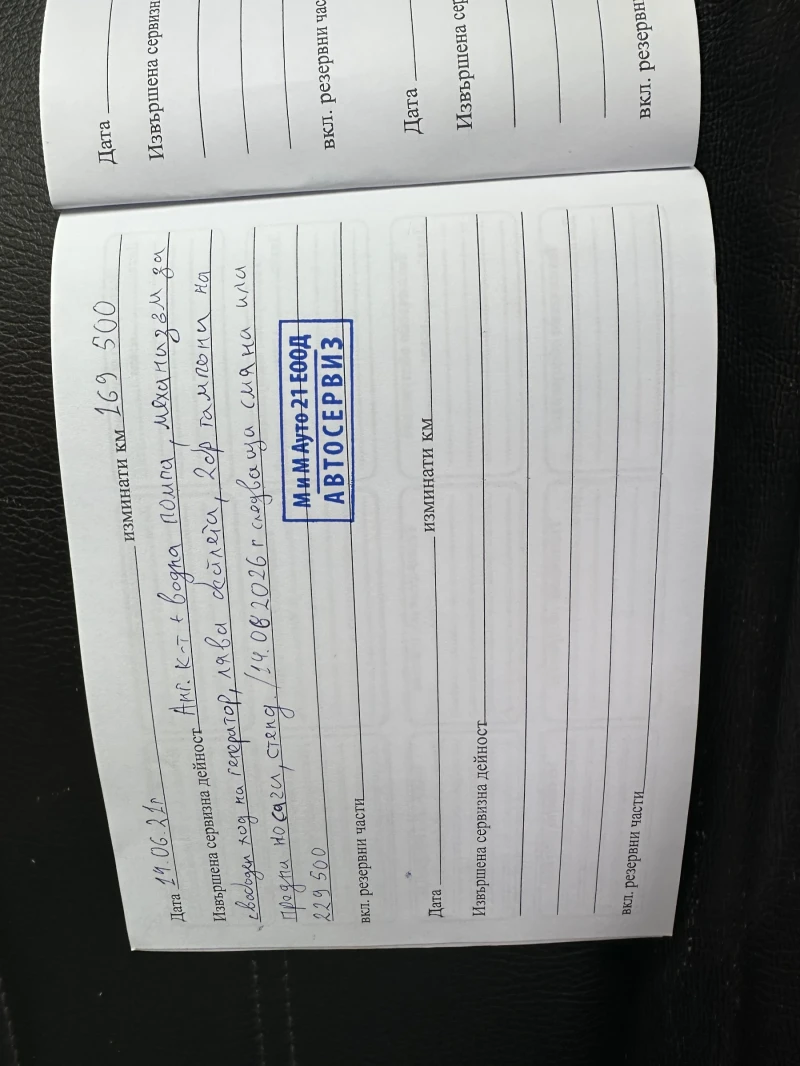 Дата
Извършена сервизн
вкл. резервни част
Дата
Извършена сер
вкл. резервн
Дата 14.06.21г изминати км 169 500
Извършена сервизна дейност Анг. к-т + водна помпа, механизъм за
свободен ход на генератор, лява биалета, 2бр тампони на
предни носачи, стенд /14.06 2026 г следваща смяна или
229 500
М и М Ауто 21 ЕООД
АВТОСЕРВИЗ
вкл. резервни части
Дата изминати км
Извършена сервизна дейност
вкл. резервни части